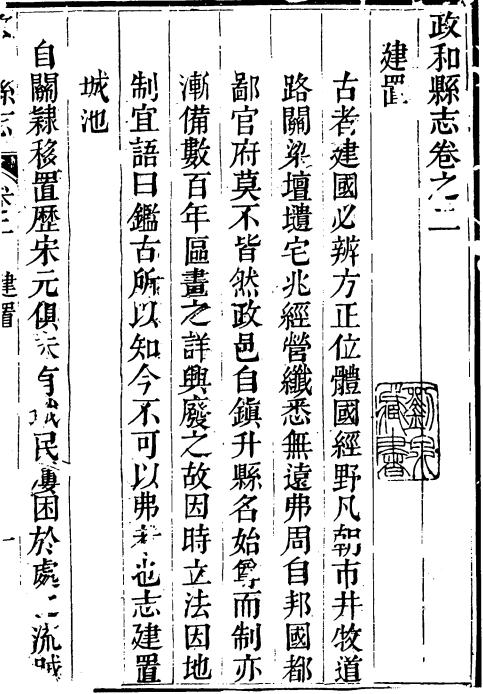 政和縣志卷之二
建置
古者建國必辨方正位體國經野凡朝市井牧道
路關梁壇壝宅兆經營纖悉無遠弗周自邦國都
鄙官府莫不皆然政邑自鎮升縣名始尊而制亦
漸備數百年區畫之詳興廢之故因時立法因地
制宜語曰鑑古所以知今不可以弗考也志建置
城池
自關隸移置歷宋元俱未有城民屢困於處 流賊
縣志 建置 一